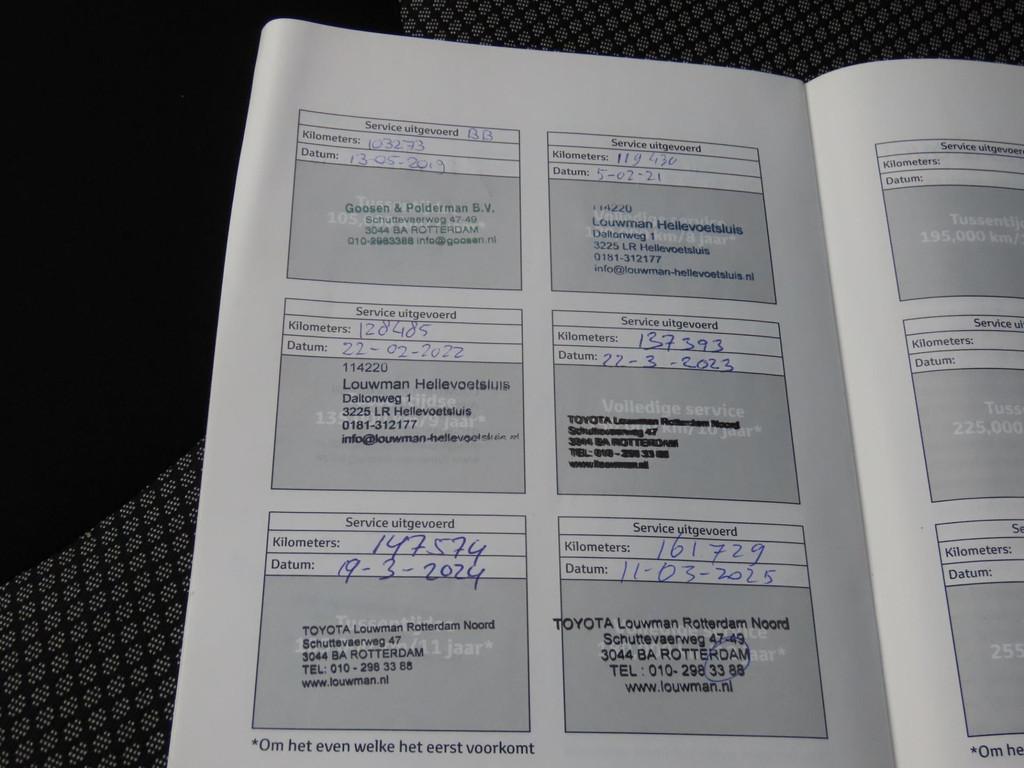 Service uitgevoerd BB
Kilometers: 103273
Datum: 13-05-2019
Goosen & Polderman B.V.
Schuttevaerweg 47-49
3044 BA ROTTERDAM
010-2983388 info@goosen.nl
Service uitgevoerd
Kilometers: 119430
Datum: 5-02-21
114220
Louwman Hellevoetsluis
Daltonweg 1
3225 LR Hellevoetsluis
0181-312177
info@louwman-hellevoetsluis.nl
Service uitgevoerd
Kilometers: 128485
Datum: 22-02-2022
114220
Louwman Hellevoetsluis
Daltonweg 1
3225 LR Hellevoetsluis
0181-312177
info@louwman-hellevoetsluis.nl
Service uitgevoerd
Kilometers: 137393
Datum: 22-3-2023
Volledige service
TOYOTA Louwman Rotterdam Noord
Schuttevaerweg 47
3044 BA ROTTERDAM
TEL: 010 - 298 33 88
www.louwman.nl
Service uitgevoerd
Kilometers: 147574
Datum: 19-3-2024
11 jaar*
TOYOTA Louwman Rotterdam Noord
Schuttevaerweg 47
3044 BA ROTTERDAM
TEL: 010 - 298 33 88
www.louwman.nl
Service uitgevoerd
Kilometers: 161729
Datum: 11-03-2025
TOYOTA Louwman Rotterdam Noord
Schuttevaerweg 47-49
3044 BA ROTTERDAM
TEL : 010- 298 33 88
www.louwman.nl
*Om het even welke het eerst voorkomt
Service uitgevoer
Kilometers:
Datum:
Tussentij
195,000 km/
Service ui
Kilometers:
Datum:
Tuss
225,000
Se
Kilometers:
Datum:
255
*Om he